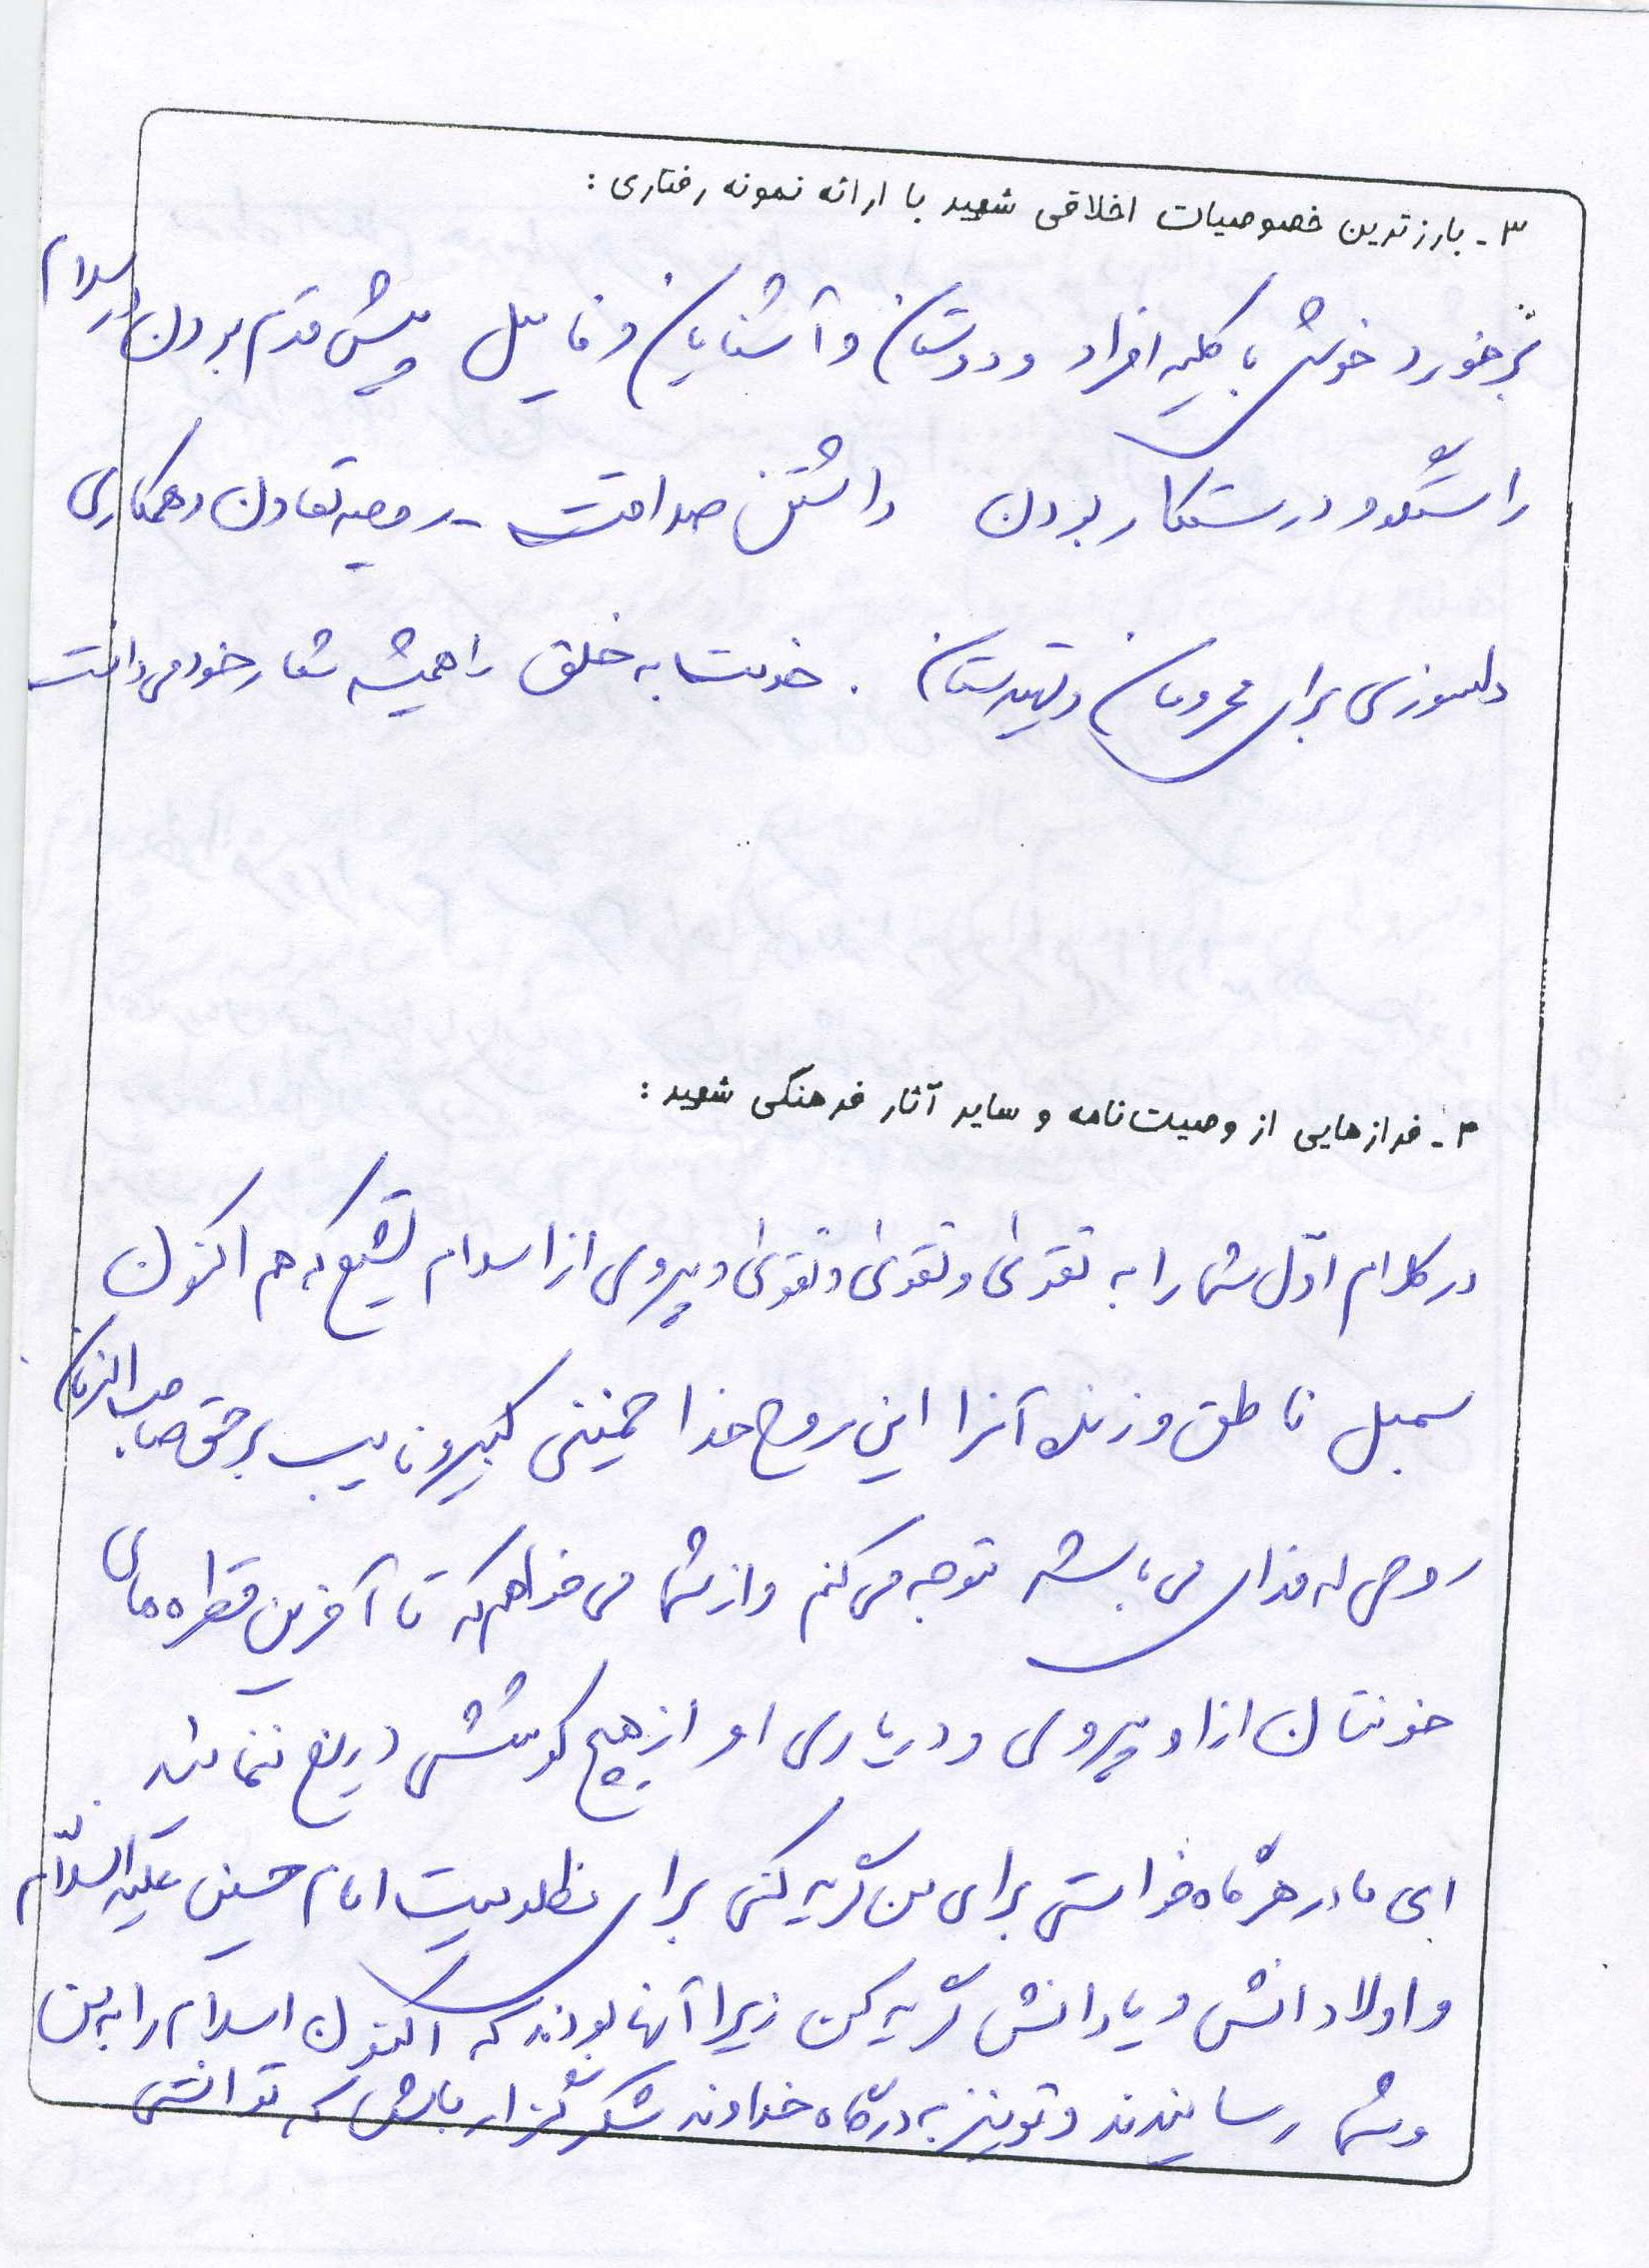 ۳- بارزترین خصوصیات اخلاقی شهید با ارائه نمونه رفتاری :
برخورد خوش با کلیه افراد و دوستان و آشنایان و فامیل پیش قدم بودن در سلام
راستگو و درستکار بودن داشتن صداقت - روحیه تعاون و همکاری
دلسوزی برای محرومان و تهیدستان . خدمت به خلق را همیشه شعار خود می دانست
۴- فرازهایی از وصیت‌نامه و سایر آثار فرهنگی شهید :
در کلام اوّل شما را به تقوی و تقوی و تقوی و پیروی از اسلام تشیع که هم اکنون
سمبل ناطق و زنده آنرا این روح خدا خمینی کبیر و نایب بر حق صاحب الزمان
روحی له فدای می باشد توجه می کنم و از شما می خواهم که تا آخرین قطره های
خونتان از او پیروی و در یاری او از هیچ کوششی دریغ ننمائید
ای مادر هرگاه خواستی برای من گریه کنی برای مظلومیت امام حسین علیه السلّام
و اولادانش و یارانش گریه کن زیرا آنها بودند که اکنون اسلام را به من
و شما رسانیدند و تو نیز به درگاه خداوند شکرگزار باش که توانستی